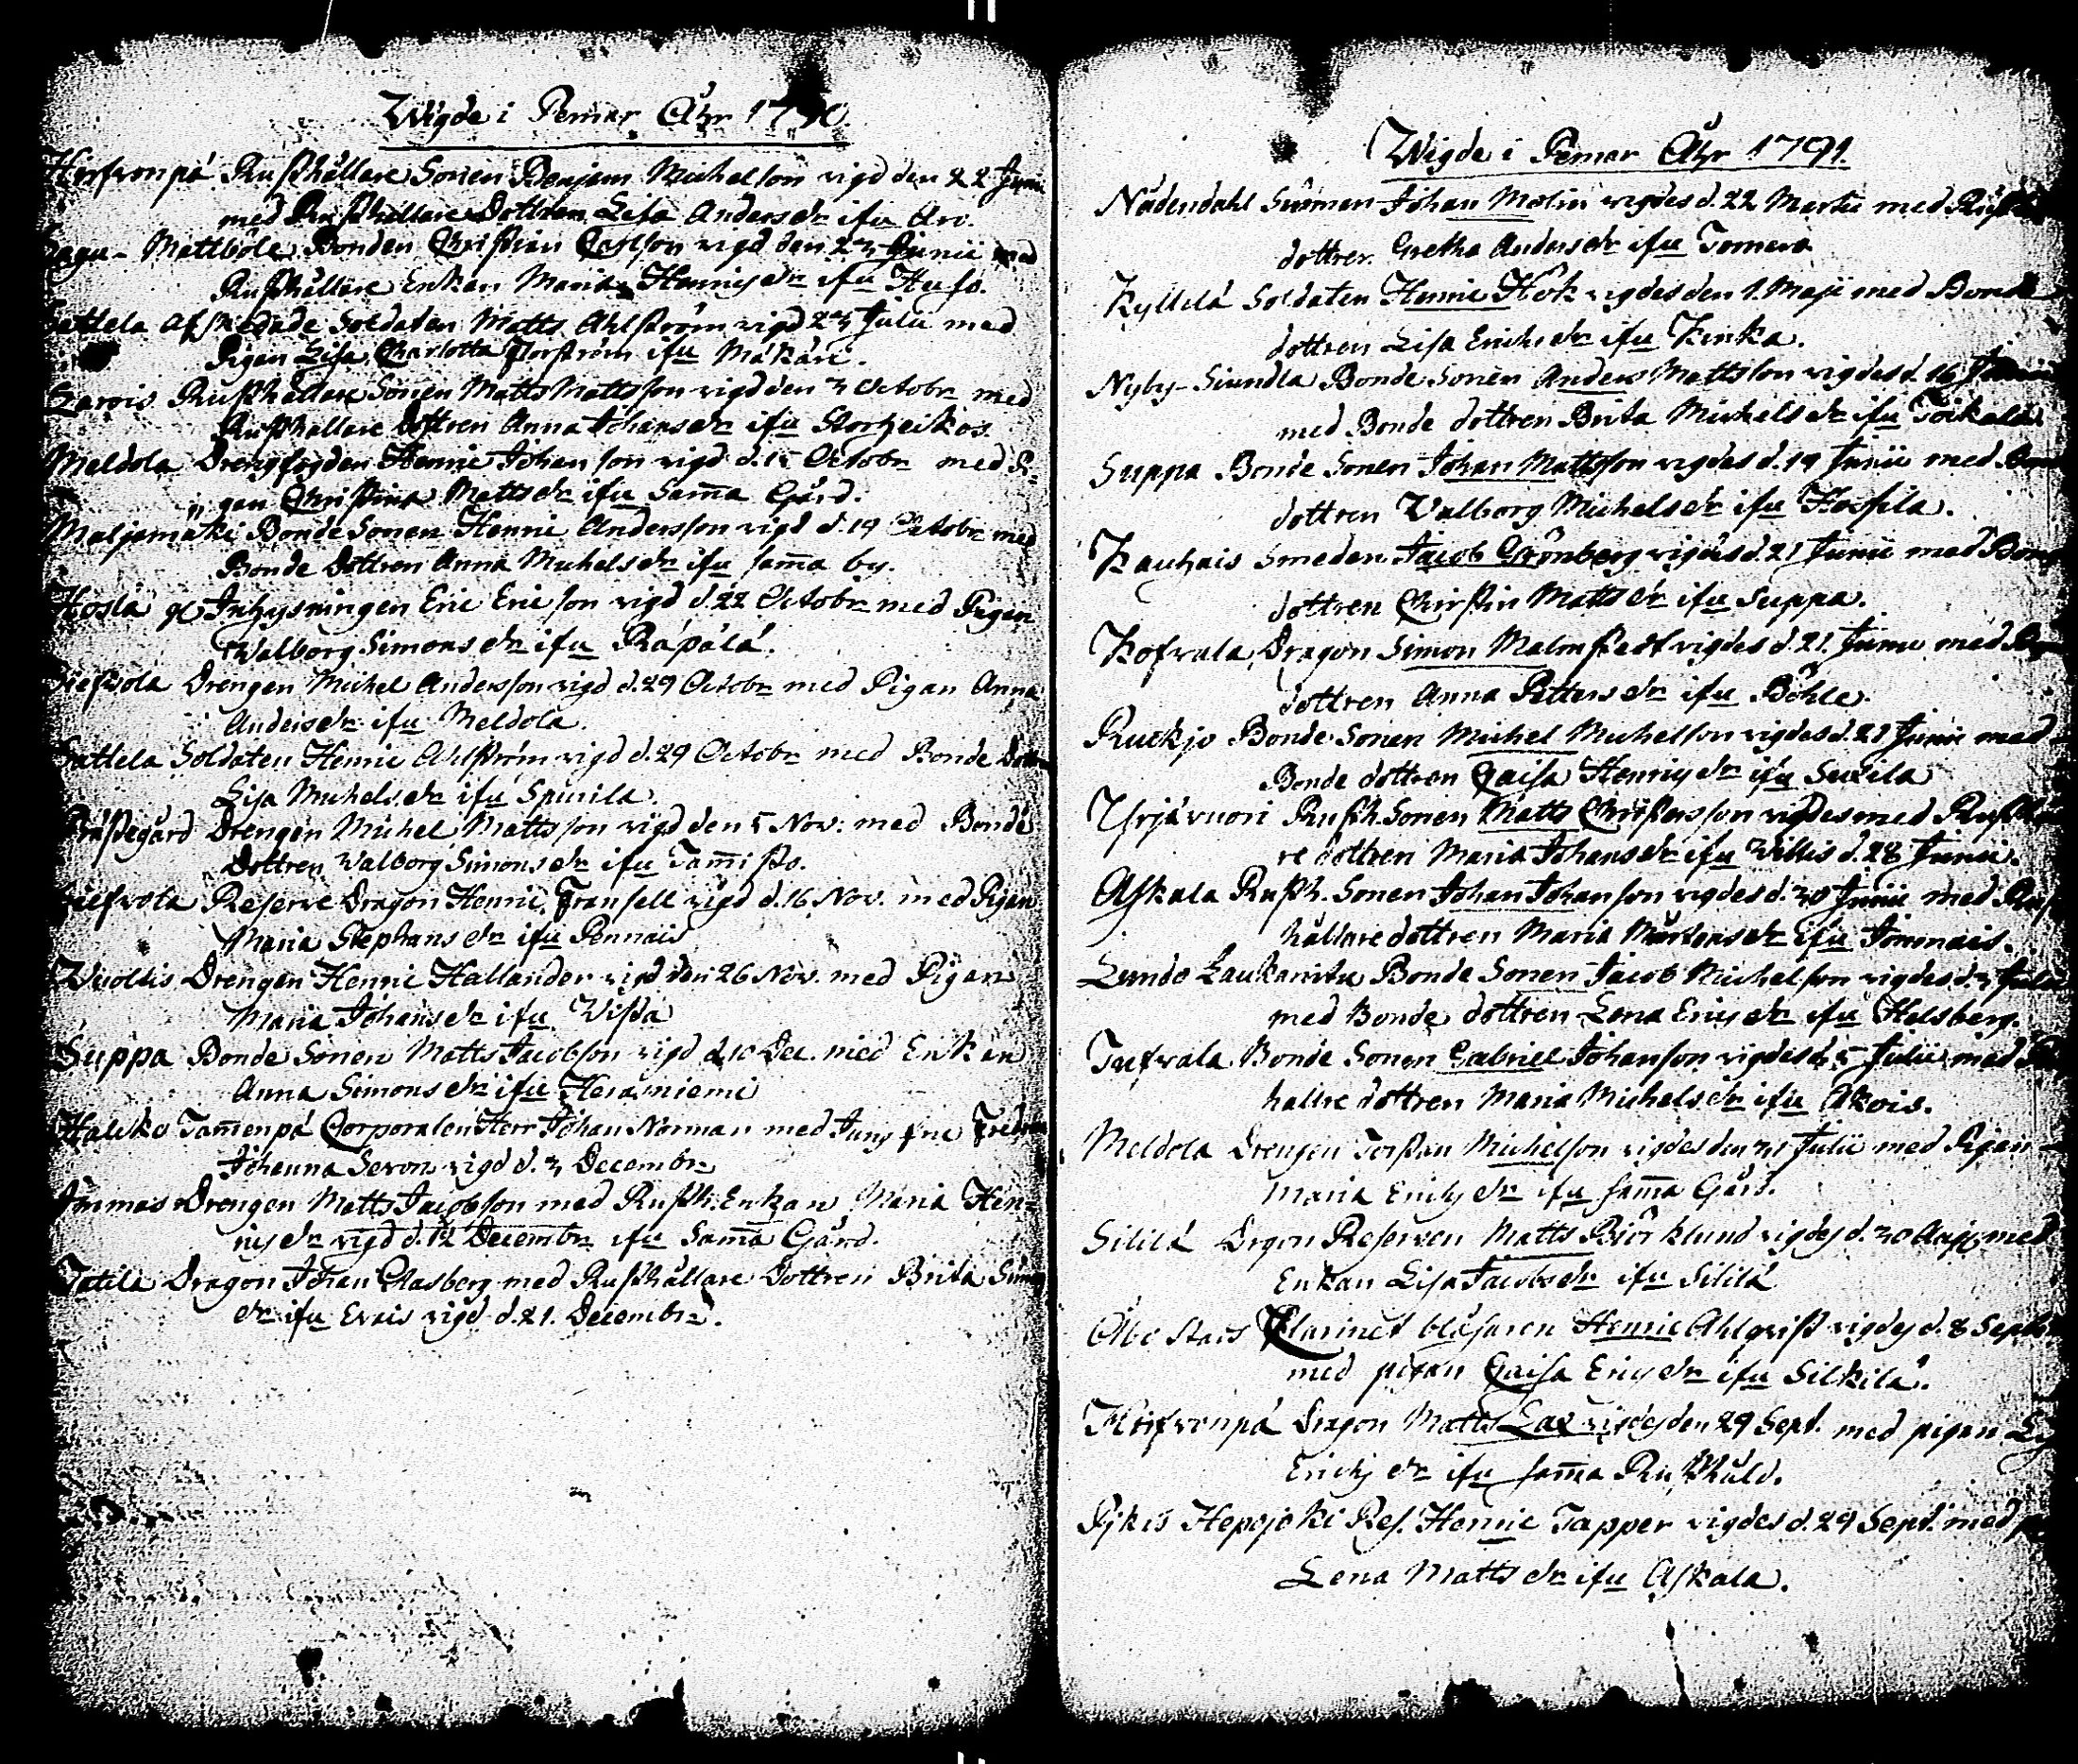 Wigde i Pemar Åhr 1790.
Hirfvonpä Rusthållare Sonen Benjam Michelson vigd den 22 Junii
med Rusthållare Dottren Lisa Andersdr ifrn Arv.
Sagu - Mattböle Bonden Christian Carlson vigd den 24 Junii med
Rusthållare Enkan Maria Henricsdr ifrn Hufo.
Sattela Afskedade Soldaten Matts Ahlström vigd 24 Julii med
Pigan Lisa Charlotta Florström ifrn Mäkäri.
Sarvis Rusthållare Sonen Matts Mattsson vigd den 3 Octobr med
Rusthållare Dottren Anna Johansdr ifrn Storheikos.
Meldola Drengfogden Henric Johanson vigd d. 15 Octobr med Pi-
gan Christina Mattsdr ifrn Sama Gård.
Maljamäki Bonde Sonen Henric Andersson vigd d. 19 Octobr med
Bonde Dottren Anna Michelsdr ifrn sama by.
Hosla Inhysningen Eric Ericson vigd d. 22 Octobr med Pigan
Walborg Simonsdr ifrn Räpälä.
Drengen Michel Andersson vigd d. 29 Octobr med Pigan Anna
Andersdr ifrn Meldola.
Sattela Soldaten Henric Ahlström vigd d. 29 Octobr med Bonde Dottren
Lisa Michelsdr ifrn Spurila.
Prästegård Drengen Michel Mattsson vigd den 5 Nov: med Bonde
Dottren Walborg Simonsdr ifrn Tammisto.
Reserve Dragon Henric Fransell vigd d. 16 Nov. med Pigan
Maria Stephansdr ifrn Pennais
Wuollis Drengen Henric Hallander vigd den 26 Nov. med Pigan
Maria Johansdr ifrn Wista
Suppa Bonde Sonen Matts Jacobson vigd d. 10 Dec. med Enkan
Anna Simonsdr ifrn Heraniemi
Haliko Tammenpä Corporalen Herr Johan Norman med Jungfru Fredrica
Johanna Seron vigd d. 3 Decembr
Ammas Drengen Matts Jacobson med Rusth. Enkan Maria Hen=
ricsdr vigd d. 12 Decembr ifrn Sama Gård.
Tatila Dragon Johan Clasberg med Rusthållare Dottren Brita Simons
dr ifrn Evais vigd d. 21. Decembr.
Wigde i Pemar Åhr 1791.
Nådendahl Siöman Johan Molin vigdes d. 22 Martii med Rusth
dottren Gretha Andersdr ifrn Tomera
Kyllilä Soldaten Henric Hök vigdes den 1. Maji med Bonde
dottren Lisa Ericsdr ifrn Kinka.
Nyby - Siundla Bonde Sonen Anders Mattsson vigdes d. 16 Junii
med Bonde dottren Brita Michelsdr ifrn Toikala.
Suppa Bonde Sonen Johan Mattsson vigdes d. 19 Junii med Bonde
dottren Walborg Michelsdr ifrn Hossila.
Kauhais Smeden Jacob Grönberg vigdes d. 21 Junii med Bonde
dottren Christin Mattsdr ifrn Suppa.
Kofvala Dragon Simon Malmstedt vigdes d. 21. Junii med
dottren Anna Pettersdr ifrn Böhle.
Ruckjo Bonde Sonen Michel Michelson vigdes d. 21 Junii med
Bonde dottren Caisa Henricsdr ifrn Suxila
Yrjävuori Rusth. Sonen Matts Christersson vigdes med Rusthålla
re dottren Maria Johansdr ifrn Willis d. 28 Junii.
Askala Rusth. Sonen Johan Johanson vigdes d. 30 Junii med Rust
hållare dottren Maria Mårtensdr ifrn Jommais.
Lundo Laukanitu Bonde Sonen Jacob Michelson vigdes d. 3 Julii
med Bonde dottren Lena Ericsdr ifrn Helsberg.
Tufvala Bonde Sonen Gabriel Johanson vigdes d. 5 Julii med Rust
hållre dottren Maria Michelsdr ifrn Akois.
Meldola Drengen Torstan Michelson vigdes den 31 Julii med Pigan
Maria Ericsdr ifrn sama Gård.
Sililä Drgon Reserven Matts Björklund vigdes d. 30 Aug. med
Enkan Lisa Jacobsdr ifrn Sililä
Åbo Stads Klarinet blåsaren Henric Ahlqvist vigdes d. 8 Septbr
med pigan Caisa Ericsdr ifrn Silkilä.
Hirfvonpä Dragon Matts Lax vigdes den 29 Sept. med pigan
Ericsdr ifrn sama Rusthåld.
Pykis Hepojoki Res. Henric Tapper vigdes d. 29 Sept. med
Lena Mattsdr ifrn Askala.